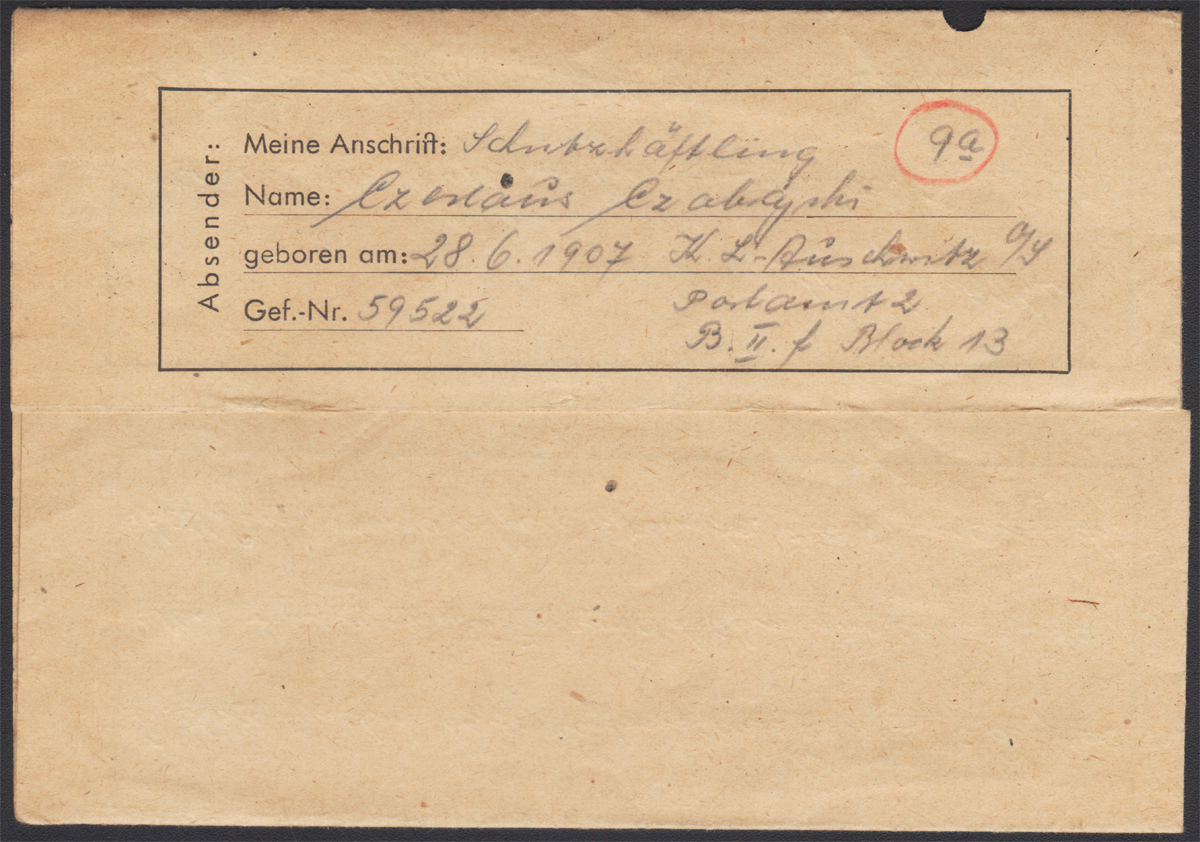 Absender:
Meine Anschrift: Schutzhäftling 9a
Name: Czeslaus
geboren am: 28.6.1907 K. L.-Auschwitz O/S
Gef.-Nr. 59522 Postamt 2
B. II. f Block 13